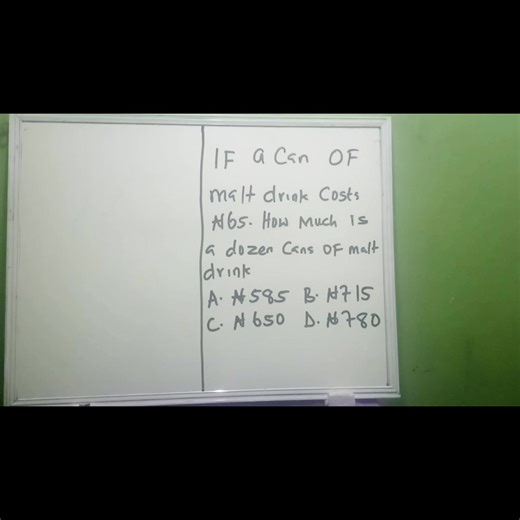 IF a Can OF
malt drink Costs
₦65. How Much is
a dozen Cans OF malt
drink
A. ₦585 B. ₦715
C. ₦650 D. ₦780